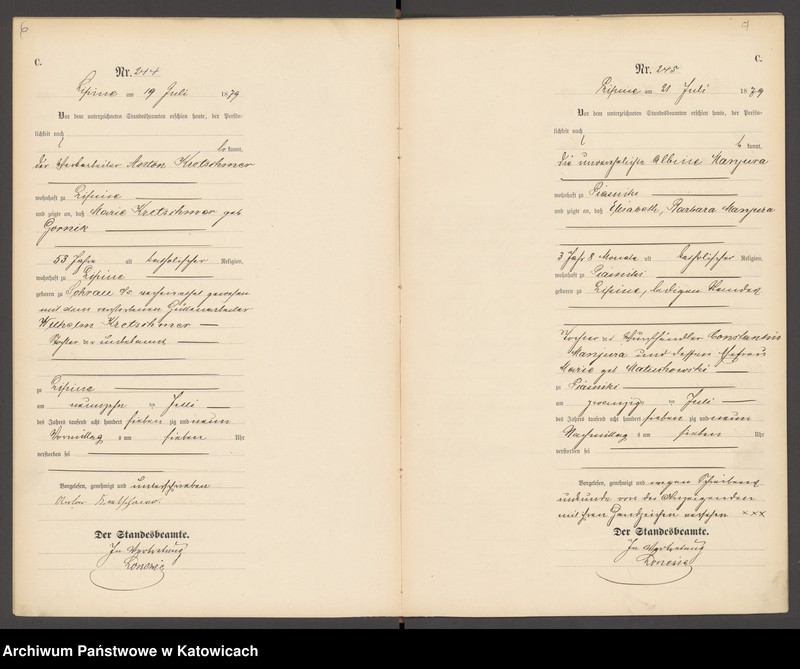 6
C.
Nr. 244
Lipine am 19 Juli 1879
Vor dem unterzeichneten Standesbeamten erschien heute, der Persön-
lichkeit nach
be kannt,
der Kretschmer
wohnhaft zu Lipine
und zeigte an, daß Marie Kretschmer geb
Gornik
53 Jahre alt katholischer Religion,
wohnhaft zu Lipine
geboren zu Sohrau O/S
mit dem verstorbenen
Wilhelm Kretschmer
Tochter der unbekannt
zu Lipine
am neunzehn ten Juli
des Jahres tausend acht hundert sieben zig und neun
Vormittag s um sieben Uhr
verstorben sei
Vorgelesen, genehmigt und unterschrieben
Der Standesbeamte.
In Vertretung
7
C.
Nr. 245
Lipine am 21 Juli 1879
Vor dem unterzeichneten Standesbeamten erschien heute, der Persön-
lichkeit nach
be kannt,
die unverehelichte Albine Manjura
wohnhaft zu Piasniki
und zeigte an, daß Elisabeth, Barbara Manjura
3 Jahr 8 Monate alt katholischer Religion,
wohnhaft zu Piasniki
geboren zu Lipine, ledigen Standes
Tochter des Constantin
Manjura und dessen Ehefrau
Marie geb
zu Piasniki
am zwanzig ten Juli
des Jahres tausend acht hundert sieben zig und neun
Nachmittag s um sieben Uhr
verstorben sei
Vorgelesen, genehmigt und wegen Schreibens
unkunde von der Anzeigenden
mit ihren Handzeichen versehen xxx
Der Standesbeamte.
In Vertretung
Archiwum Państwowe w Katowicach